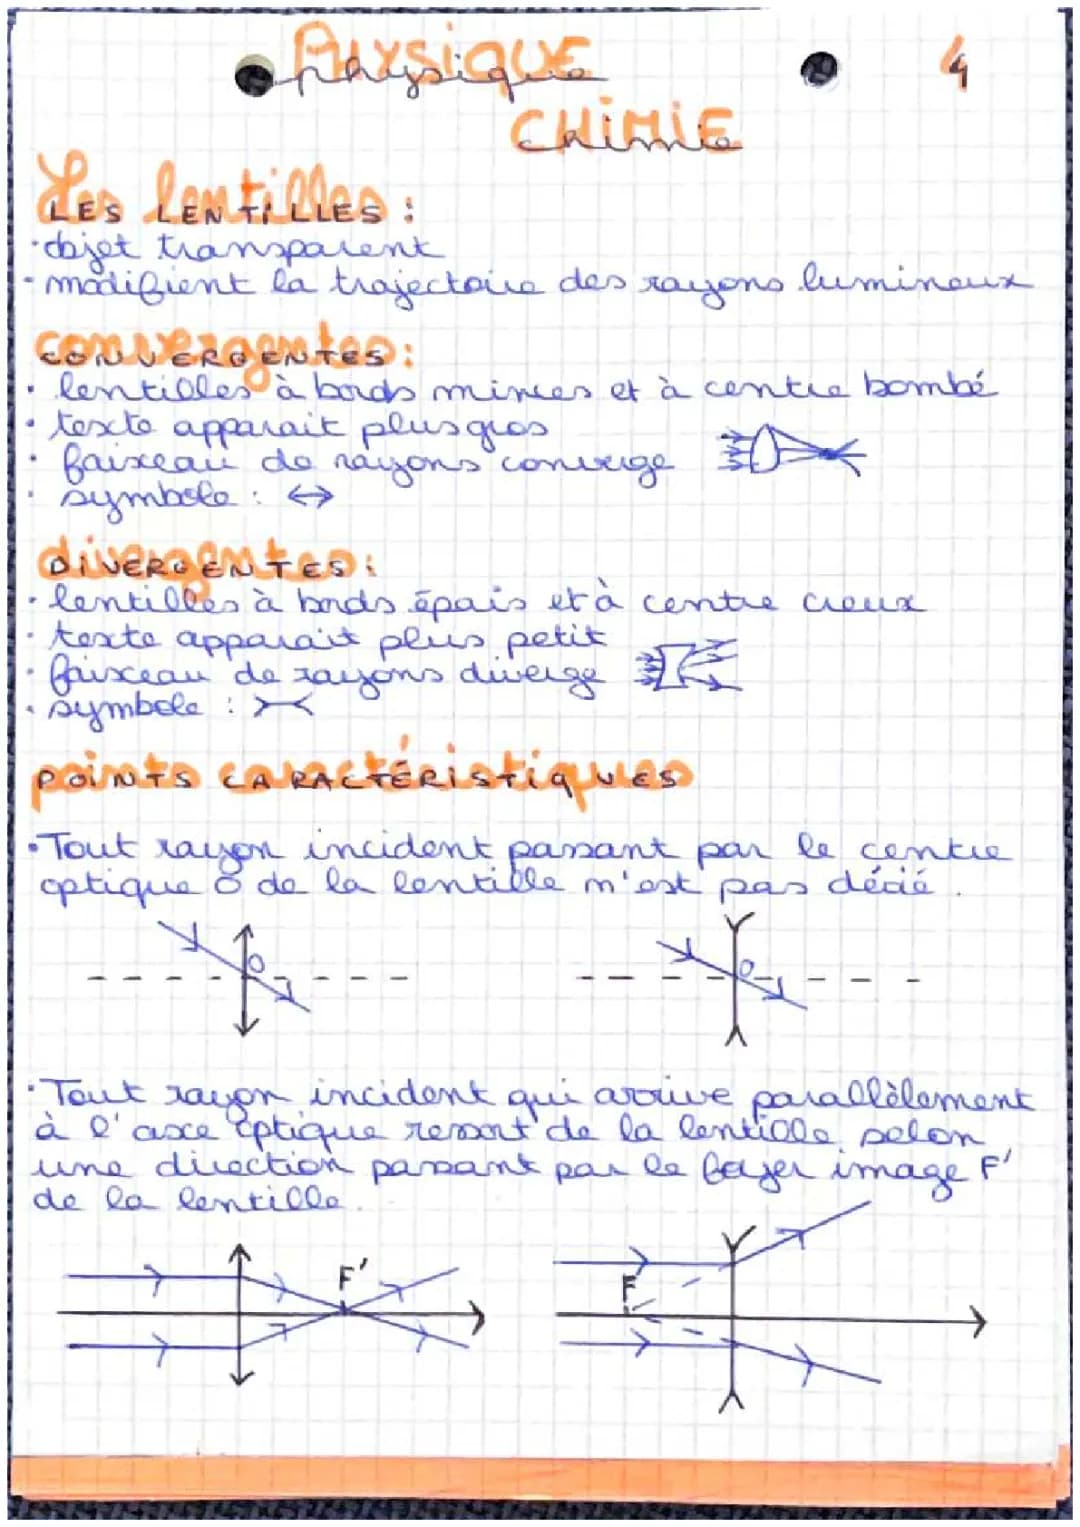 Physique
physique
4
CHiMiE
chimie
Les lentilles :
LES LENTiLLES :
• objet transparent
• modifient la trajectoire des rayons lumineux
convergentes :
CONVERGENTES :
• lentilles à bords minces et à centre bombé
• texte apparait plus gros
• faisceau de rayons converge
• symbole : ↔
divergentes :
DiVERGENTES :
• lentilles à bords épais et à centre creux
• texte apparait plus petit
• faisceau de rayons diverge
• symbole : >–<
points caractéristiques
POiNTS CARACTÉRiSTiQUES
• Tout rayon incident passant par le centre
optique O de la lentille n'est pas dévié.
O
O
• Tout rayon incident qui arrive parallèlement
à l'axe optique ressort de la lentille selon
une direction passant par le foyer image F'
de la lentille.
F'
F